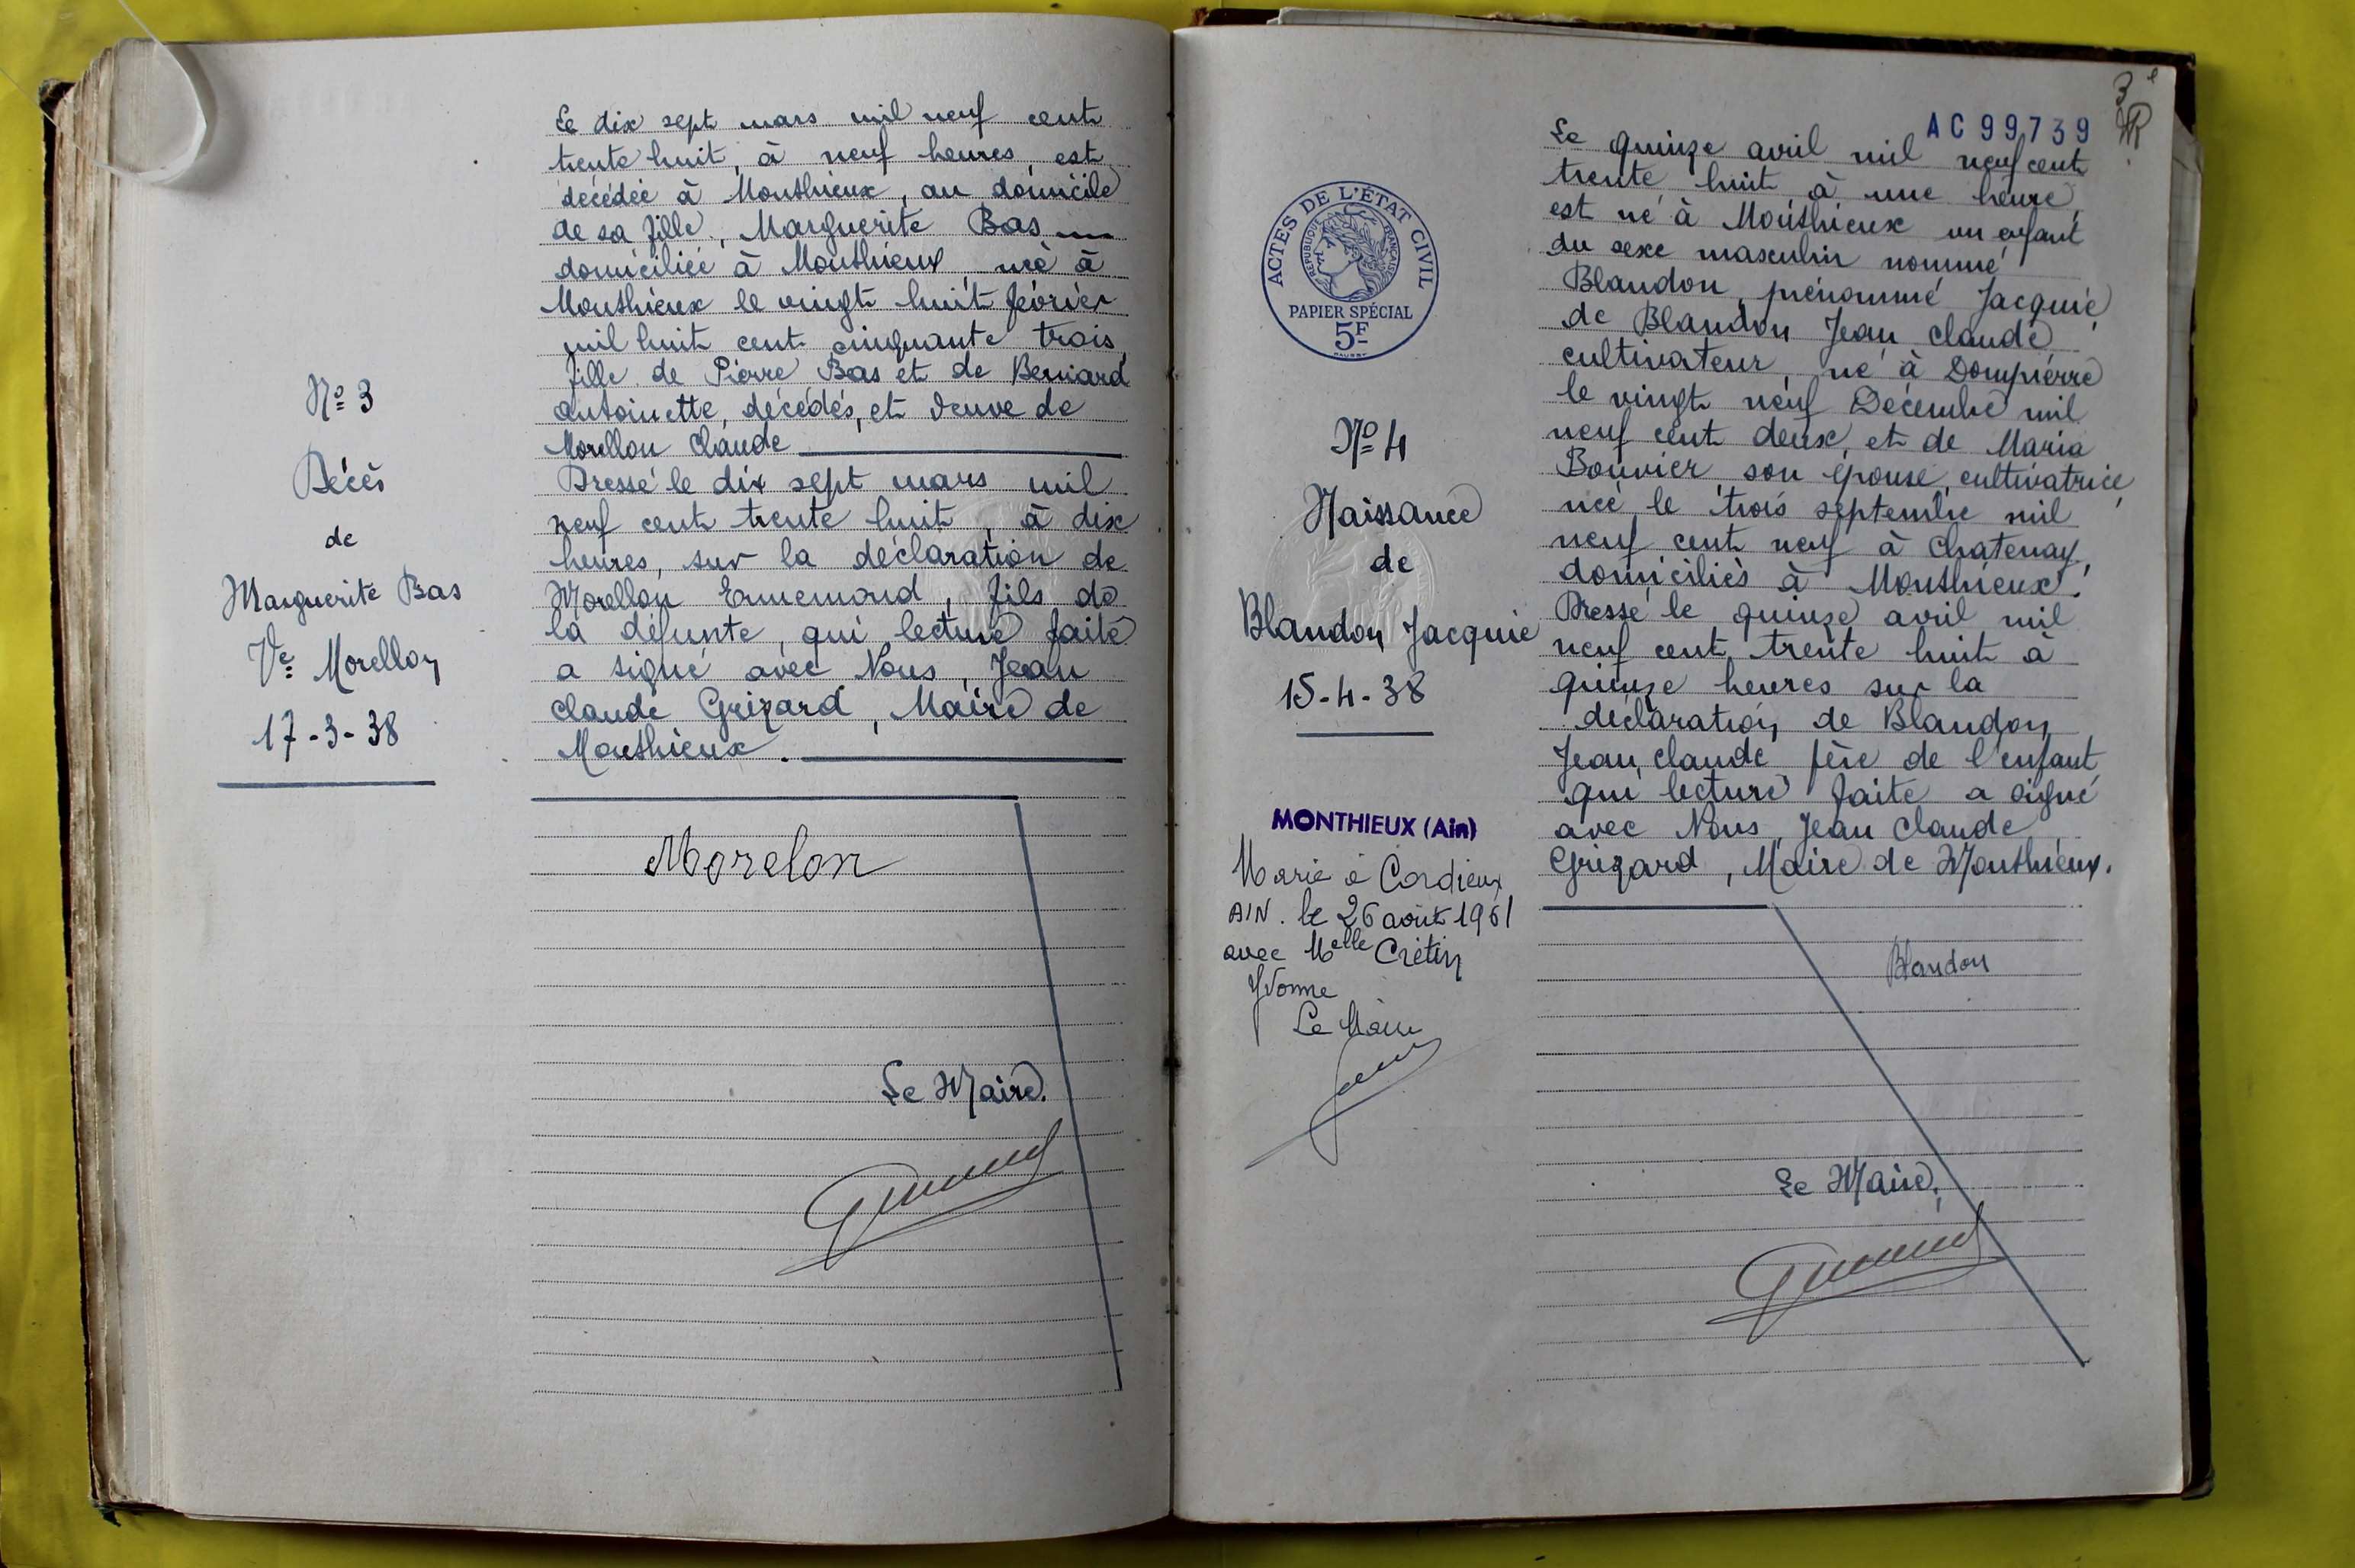 N° 3
Décès
de
Marguerite Bas
Ve Morellon
17-3-38
Le dix sept mars mil neuf cent
trente huit, à neuf heures, est
décédée à Monthieux, au domicile
de sa fille, Marguerite Bas
domiciliée à Monthieux, née à
Monthieux le vingt huit février
mil huit cent cinquante trois,
fille de Pierre Bas et de Bernard
Antoinette, décédés, et veuve de
Morellon Claude
Dressé le dix sept mars mil
neuf cent trente huit, à dix
heures, sur la déclaration de
Morellon Ennemond, fils de
la défunte, qui lecture faite
a signé avec Nous, Jean
Claude Grizard, Maire de
Monthieux.
Morelon
Le Maire.
3e
AC99739
ACTES DE L'ÉTAT CIVIL
RÉPUBLIQUE FRANÇAISE
PAPIER SPÉCIAL
5F
N° 4
Naissance
de
Blandon Jacquie
15-4-38
MONTHIEUX (Ain)
Marié à Cordieux
AIN. le 26 août 1961
avec Melle Crétin
Yvonne
Le Maire
Le quinze avril mil neuf cent
trente huit à une heure,
est né à Monthieux un enfant
du sexe masculin nommé
Blandon, prénommé Jacquie,
de Blandon Jean Claude
cultivateur, né à Dompierre
le vingt neuf Décembre mil
neuf cent deux, et de Maria
Bouvier son épouse, cultivatrice,
née le trois septembre mil
neuf cent neuf à Chatenay,
domiciliés à Monthieux.
Dressé le quinze avril mil
neuf cent trente huit à
quinze heures sur la
déclaration de Blandon
Jean Claude père de l'enfant
qui lecture faite a signé
avec Nous, Jean Claude
Grizard, Maire de Monthieux.
Blandon
Le Maire,